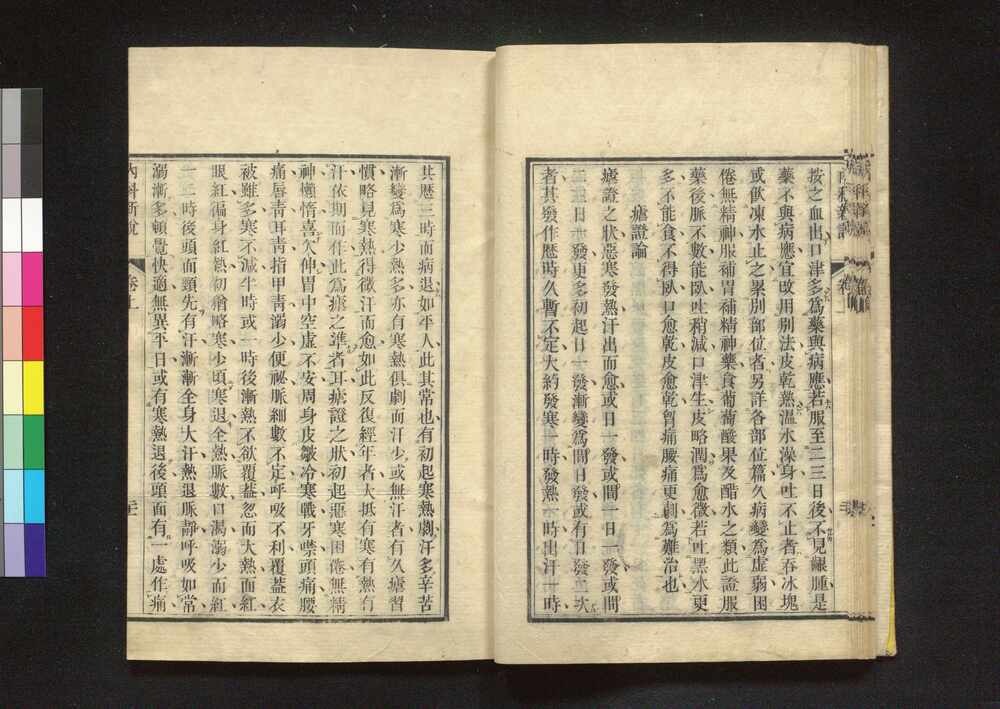 按之血出口津多爲藥與病應若服至二三日後不見齦腫是
藥不與病應宜改用別法皮乾熱溫水澡身吐不止者吞冰塊
或飲凍水止之累別部位者另詳各部位篇久病變爲虛弱困
倦無精神服補胃補精神藥食葡萄酸果及醋水之類此證服
藥後脈不數能臥吐稍減口津生皮略潤爲愈徵若吐黑水更
多不能食不得臥口愈乾皮愈乾胃痛腰痛更劇爲難治也
瘧證論
瘧證之狀惡寒發熱汗出而愈或日一發或間一日一發或間
二三日一發更多初起日一發漸變爲間日發或有日發二次
者其發作歷時久暫不定大約發寒一時發熱一時出汗一時
共歷三時而病退如平人此其常也有初起寒熱劇汗多辛苦
漸變爲寒少熱多亦有寒熱俱劇而汗少或無汗者有久瘧習
慣略見寒熱得微汗而愈如此反復經年者大抵有寒有熱有
汗依期而作此爲瘧之準者耳瘧證之狀初起惡寒困倦無精
神懶惰喜欠伸胃中空虛不安周身皮皺冷寒戰牙噤頭痛腰
痛唇靑耳靑指甲靑溺少便祕脈細數不定呼吸不利覆蓋衣
被雖多寒不減半時或一時後漸熱不欲覆蓋忽而大熱面紅
眼紅徧身紅熱初猶略寒少頃寒退全熱脈數口渴溺少而紅
一二時後頭面頸先有汗漸漸全身大汗熱退脈靜呼吸如常
溺漸多頓覺快適無異平日或有寒熱退後頭面有一處作痛
內科新說 卷上